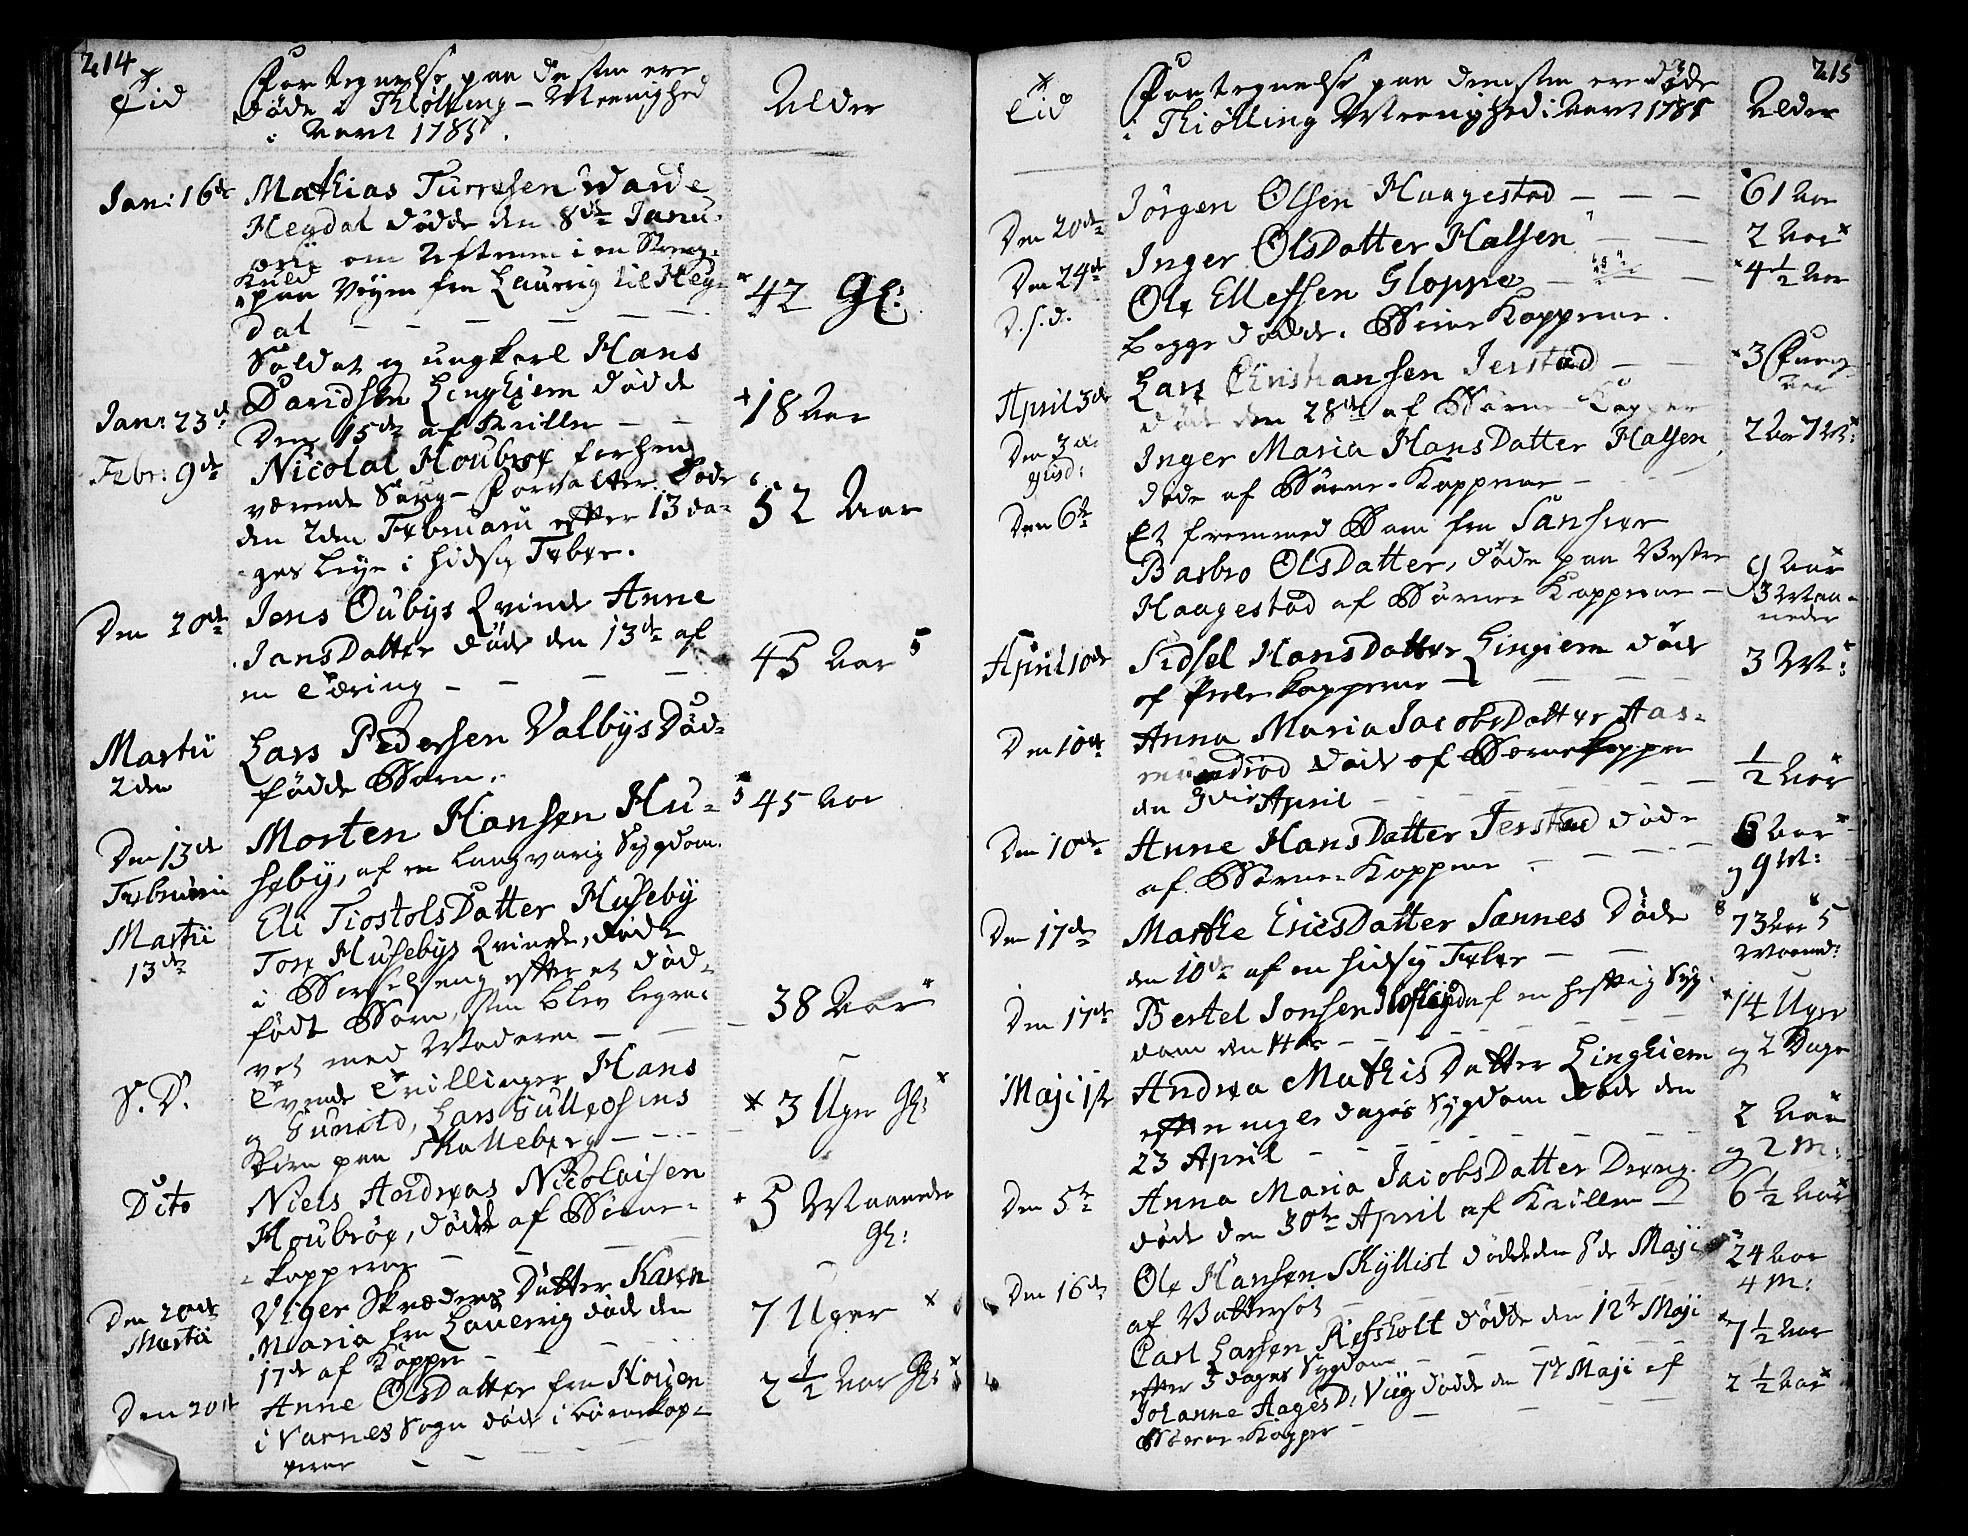 214
Tid
Fortegnelse paa de som ere
døde i Thiølling - Meenighed
i Aaret 1785.
Alder
Jan: 16de
Mathias Turresen Warde
Hegdal døde den 8de Janu-
arii om Aftenen i en
Kuld
paa Vejen fra Laurvig til Heg-
dal
42 Gl:
Soldat og ungkarl Hans
Jan: 23de
Davidsen Linghiem døde
den 15de af Krillen
18 Aar
Febr: 9de
Nicolai Houbroe forhen
værende Saug-Forvalter døde
den 2den Februarii efter 13 da-
ges leye i hidsig Feber.
52 Aar
Den 20de
Jens Oubys Qvinde Anne
JansDatter døde den 13de af
en Tæring
45 Aar
Martii
2den
Lars Pedersen Valbys Død-
fødde Barn.
Den 13de
Februarii
Morten Hansen Hu-
seby, af en langvarig Sygdom.
45 Aar
Martii
13de
Eli TiostolsDatter Huseby
Tore Husebys Qvinde, døde
i Barselseng efter et død-
født Barn, som blev begra-
vet med Moderen
38 Aar
S. D.
Tvende Trillinger Hans
og Gunild, Lars Gulløsens
Børn paa Skalleberg
3 Uger Gl:
Dito
Niels Andreas Nicolaisen
Houbroe, døde af Børne-
kopperne
5 Maaneder
Gl:
Den 20de
Martii
Viger Skræders Datter Karen
Maria fra Laurvig døde den
17de af Kopper
7 Uger
Den 20de
Anne OlsDatter fra Hougen
i Varnes Sogn døde i Børnekop-
perne
2 1/2 Aar Gl:
215
Tid
Fortegnelse paa dem som ere døde
i Thiølling Meenighed i Aaret 1785
Alder
Den 20de
Jørgen Olsen Haagestad
61 Aar
Den 24de
Inger OlsDatter Halsen
2 Aar
D. s. d.
Ole Ellefsen Gloppe
4 1/2 Aar
begge døde. Børne Kopperne.
April 3de
Lars Christiansen Jerstad
3
Aar
døde den 28de af Børne-Kopper
Den 3de
Inger Maria HansDatter Halsen
2 Aar 7 M:
døde af Børne-Kopperne
Den 6te
Et fremmed Barn fra
Barbro OlsDatter, døde paa Vestre
Haagestad af Børne Kopperne
9 Aar
3 Maa-
neder
April 10de
Sidsel HansDatter Lingiem døde
af Børnekopperne
3 M:
Den 10de
Anna Maria JacobsDatter Aas-
mundrød døde af Børnekopper
den 3die April
1/2 Aar
Den 10de
Anne HansDatter Jerstad døde
af Børne-Kopperne
6 Aar
og 9 M:
Den 17de
Marthe EricsDatter Sannes døde
den 10de af en hidsig Feber
73 Aar 5
Maaned:
Den 17de
Bertel Jonsen af en heftig Syg-
dom den 11te
14 Uger
og 2 Dage
Maji 1ste
Andrea MathisDatter Linghiem
efter nogle dages Sygdom døde den
23 April
2 Aar
og 2 M:
Den 5te
Anna Maria JacobsDatter Dreng
døde den 30te April af Krillen
6 1/2 Aar
Den 16de
Ole Hansen Skyllist døde den 5de Maji
af Vattersot
24 Aar
4 M:
Carl Larsen Refsholt døde den 12te Maji
efter 3 dages Sygdom
7 1/2 Aar
Johanne AagesD. Viig døde den 7de Maji af
Børne-Kopper
2 1/2 Aar